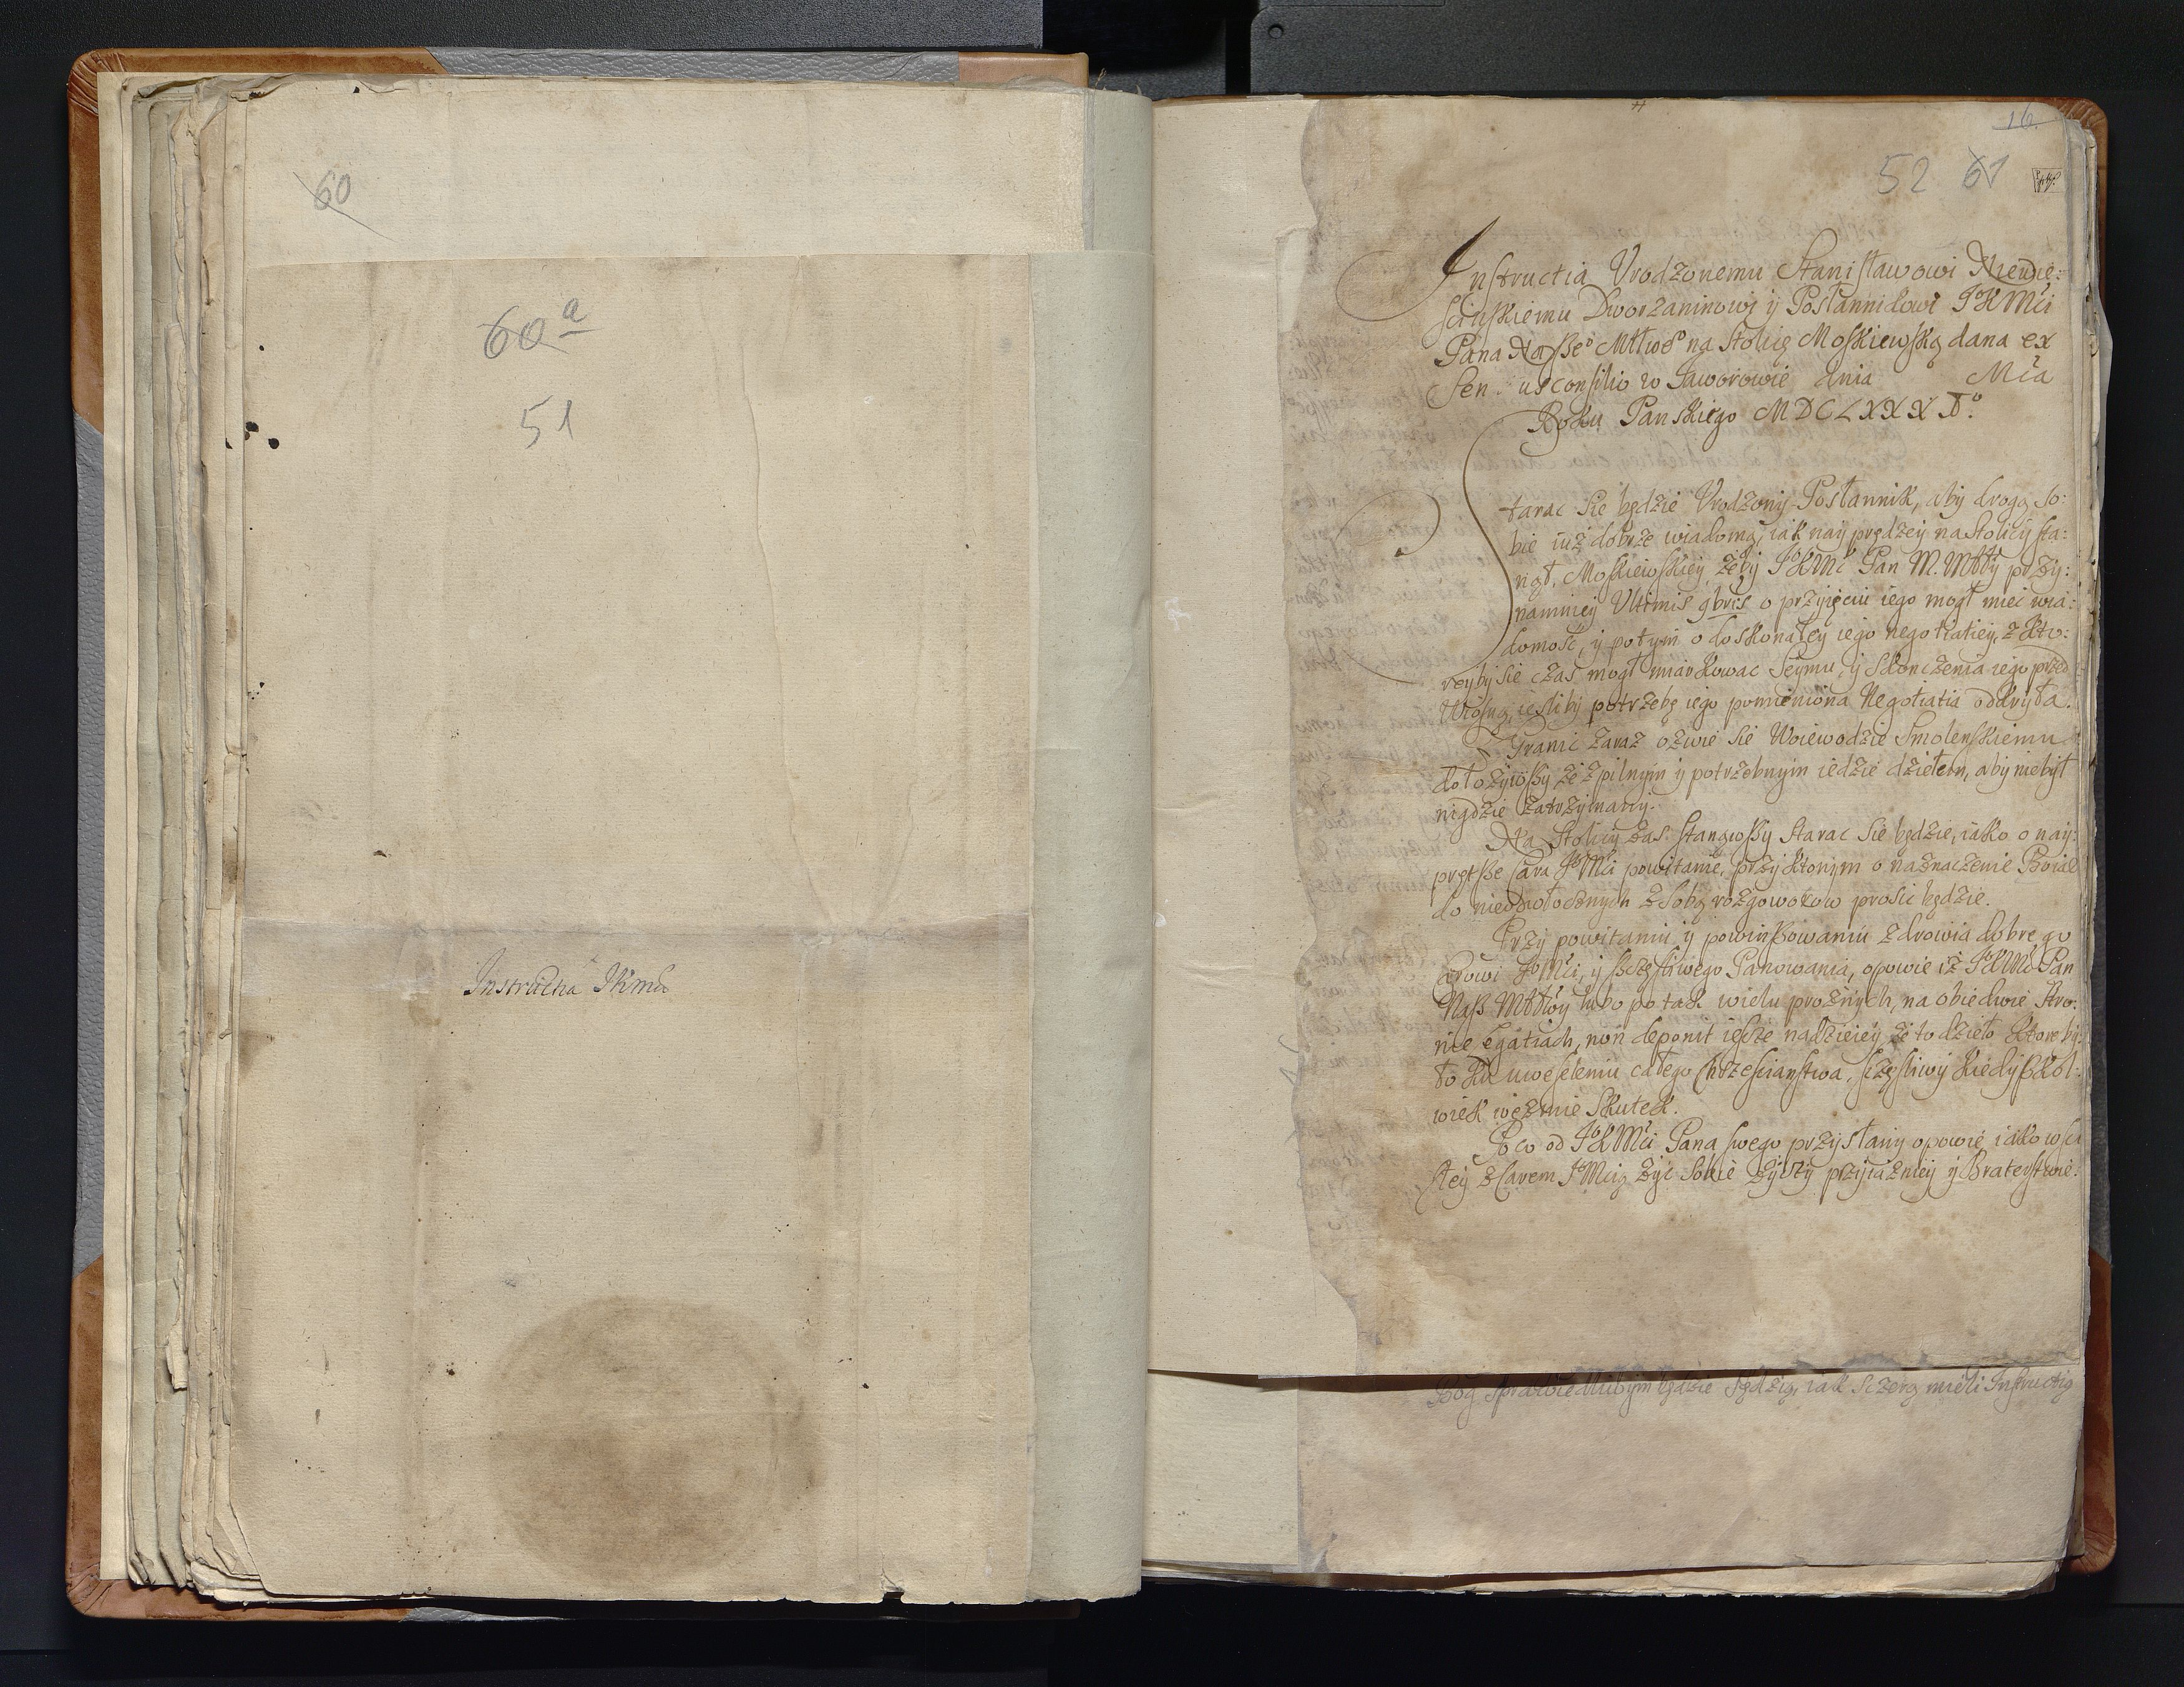 60
60a
51
Instructia JKmci
16.
52 61
Instructia Vrodzonemu Stanisławowi Niewie:
scinskiemu Dworzaninowi y Posłannikowi JoKMci
Pana Naßeo Młłwo na Stolicę Moskiewską dana ex
Sen us consilio w Jaworowie dnia Mca
Roku Panskiego MDCLXXX
Starac się będzie Vrodzony Posłannik, aby drogą so:
bie iuż dobrze wiadomą, iak nay prędzey na Stolicy sta:
nął, Moskiewskiey, żeby JoKMć Pan M. Młłwy przy:
namniey Vltimis 9bris o przyięciu iego mogł miec wia:
domosc, y potym o doskonałey iego negotiatiey, z kto:
reyby się czas mogł miarkowac Seymu, y skonczenia iego przed
Wiosną, iesliby potrzebę iego pomieniona Negotiatia odkryła.
Z Granic zaraz ozwie się Woiewodzie Smolenskiemu
dołożywßy że z pilnym y potrzebnym iedzie dziełem, aby niebył
nigdzie zatrzymany.
Na Stolicy zas stanąwßy starac się będzie, iako o nay:
prętße Cara JoMci powitanie, przy ktorym o naznaczenie Boiar
do nieodwłocznych z sobą rozgoworow prosic będzie.
Przy powitaniu y powinßowaniu zdrowia dobrego
Carowi JoMci, y ßczęsliwego Panowania, opowie iż JoKMć Pan
Naß Młłwy lubo po tak wielu prożnych, na obiedwie stro:
nie Legatiach, non deponit ießcze nadzieiey, że to dzieło ktore by:
ło ku uweseleniu całego Chrzescianstwa, sczęsliwy kiedyßkol:
wiek wezmie skutek.
Po co od JoKMci Pana swego przysłany opowie, iako w sci
słey z Carem JoMcią życ sobie życzy przyiazniey y Braterstwie.
Bog sprawiedliwym będzie Sędzią, iak sczerą mieli Instructią